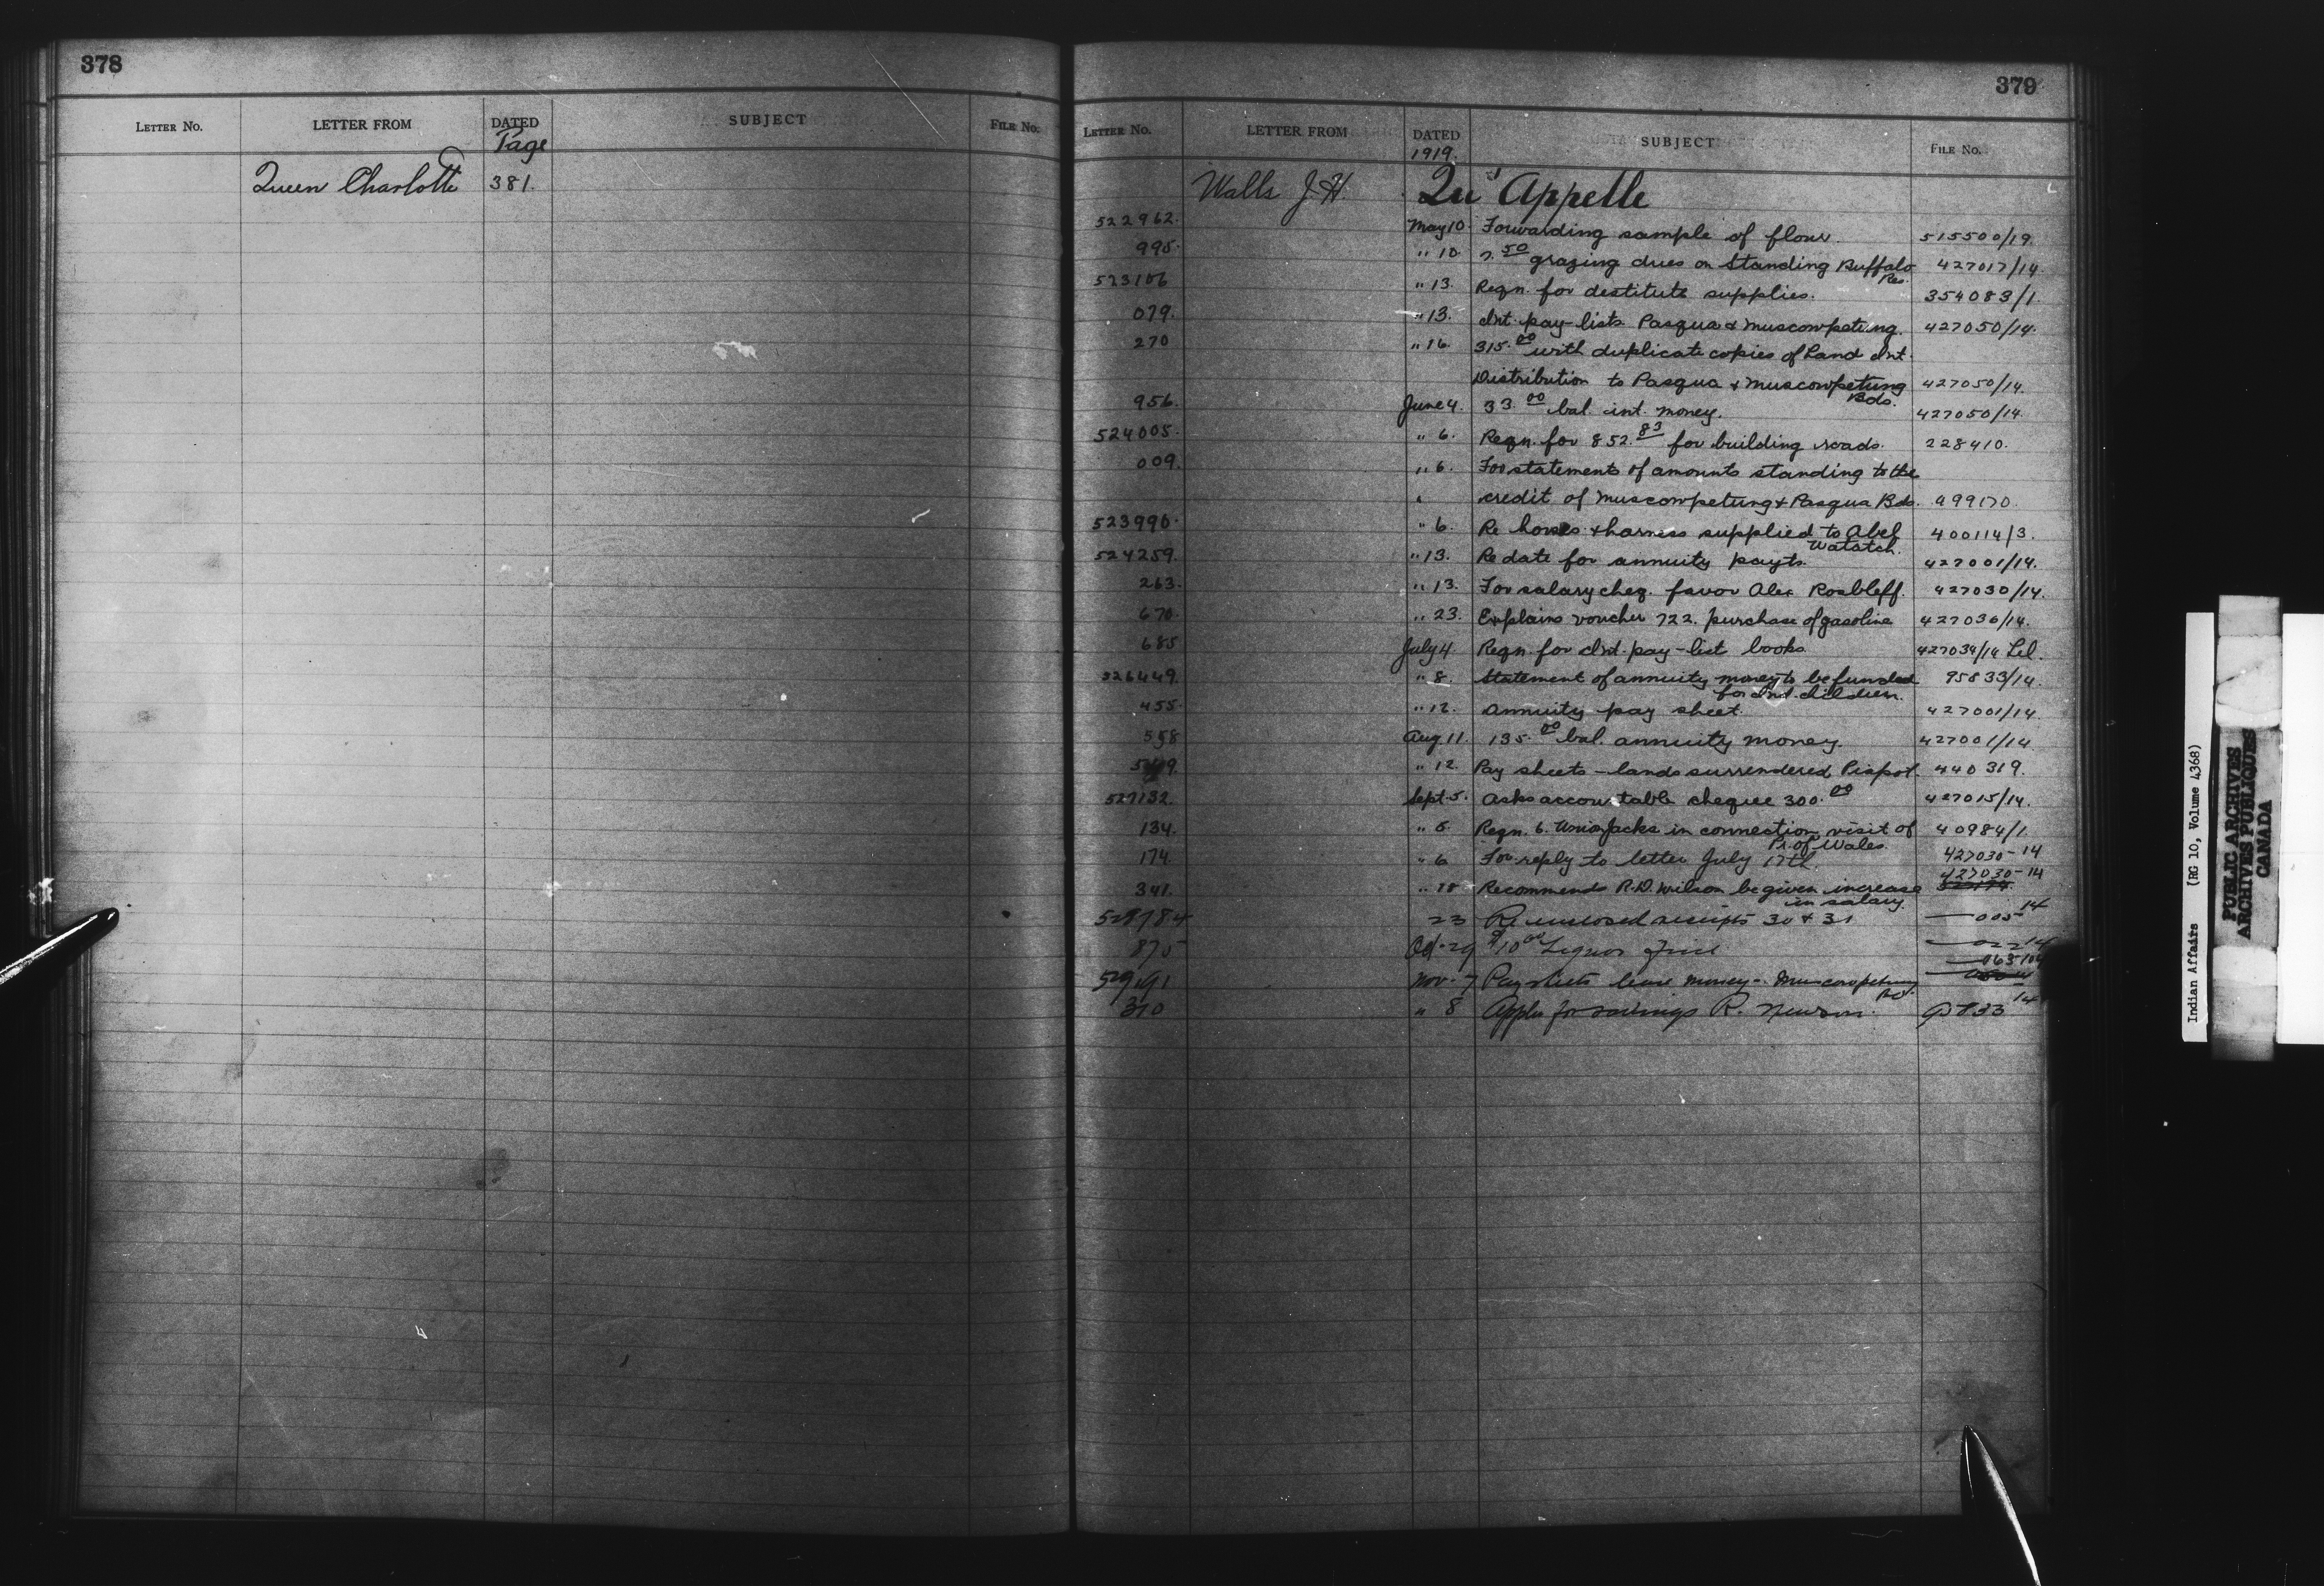 378
LETTER NO. LETTER FROM DATED SUBJECT FILE NO.
Page
Queen Charlotte 381.
379
LETTER NO. LETTER FROM DATED SUBJECT FILE NO.
1919.
Walls J. H. Qu'Appelle
522962. May 10 Forwarding sample of flour. 515500/19.
995. " 10 7.50 grazing dues on Standing Buffalo 427017/14.
Res.
523106 " 13. Reqn. for destitute supplies. 354083/1.
079. " 13. Int. pay-lists Pasqua & Muscowpetung. 427050/14.
270 " 16. 315.00 with duplicate copies of Land Int.
Distribution to Pasqua & Muscowpetung 427050/14.
Bds.
956. June 4. 33.00 bal. int. money. 427050/14.
524005. " 6. Reqn. for 852.83 for building roads. 228410.
009. " 6. For statements of amounts standing to the
credit of Muscowpetung & Pasqua Bds. 499170.
523996. " 6. Re horses & harness supplied to Abel 400114/3.
Watatch.
524259. " 13. Re date for annuity payts. 427001/14.
263. " 13. For salary cheq. favor Alex 427030/14.
670. " 23. Explains voucher 722. purchase of gasoline 427036/14.
685 July 4. Reqn. for Int. pay-list books. 427034/14
526449. " 8. Statement of annuity money to be funded 95833/14.
for Ind. children.
455. " 12. Annuity pay sheet. 427001/14.
558 Aug. 11. 135.00 bal. annuity money. 427001/14
" 12. Pay sheets - lands surrendered Piapot. 440319.
527132. Sept. 5. Asks accountable cheque 300.00 427015/14.
134. " 5. Reqn. 6. Union Jacks in connection visit of 40984/1.
Pr. of Wales.
174. " 6 For reply to letter July 17th. 427030-14
341. " 18 Recommends R.D. Wilson be given increase 427030-14
in salary.
528784 23 Re enclosed receipts 30 & 31 — 005 14
875 Oct. 29 $10.00 Liquor Fine — 022 14
529191 Nov. 7 Pay sheets lease money - Muscowpetung
Bd.
310 " 8 Appln for savings R. 14
Indian Affairs (RG 10, Volume 4368)
PUBLIC ARCHIVES
ARCHIVES PUBLIQUES
CANADA